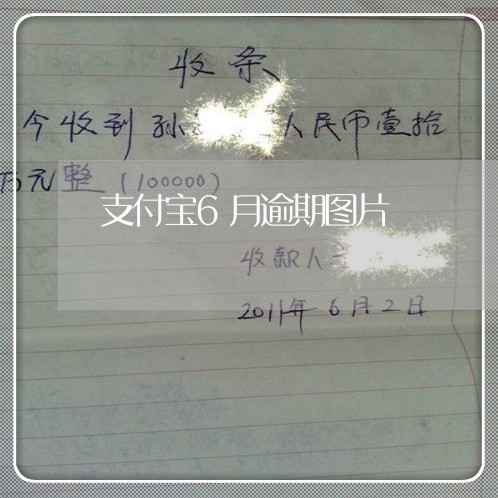 收条
今收到孙 人民币壹拾
万元整(100000)
支付宝6月逾期图片
收款人
2011年6月2日